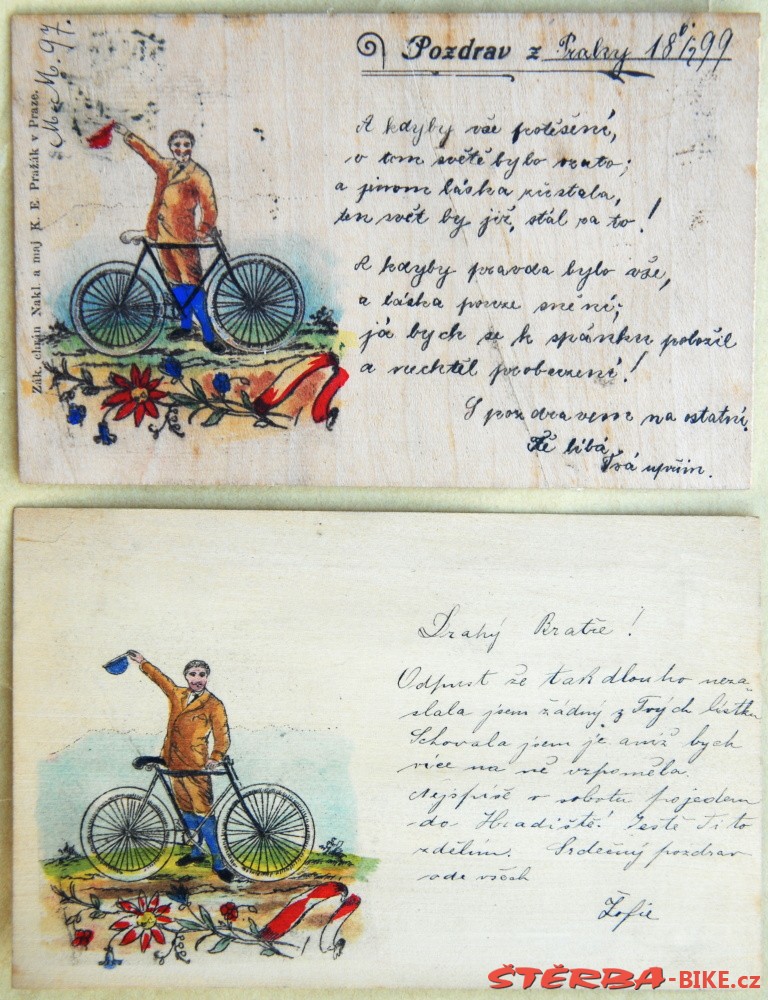 Pozdrav z Prahy 18 6/7 99
M. 97.
Zák. chrán Nakl. a maj K. E. Pražák v Praze.
A kdyby vše potěšení,
v tom světě bylo vzato;
a jenom láska zůstala,
ten svět by již, stál za to!
A kdyby pravda bylo vše,
a láska pouze snění;
já bych se k spánku položil
a nechtěl probuzení!
S pozdravem na ostatní.
Tě líbá
Tvá upřím.
Drahý Bratře!
Odpust že tak dlouho neza-
slala jsem žádný z Tvých lístku
Schovala jsem je aniž bych
více na ně vzpoměla.
Nejspíše v sobotu pojedem
do Hradiště! Ještě Ti to
zdělím. Srdečný pozdrav
ode všech
Žofie
ŠTĚRBA-BIKE.cz